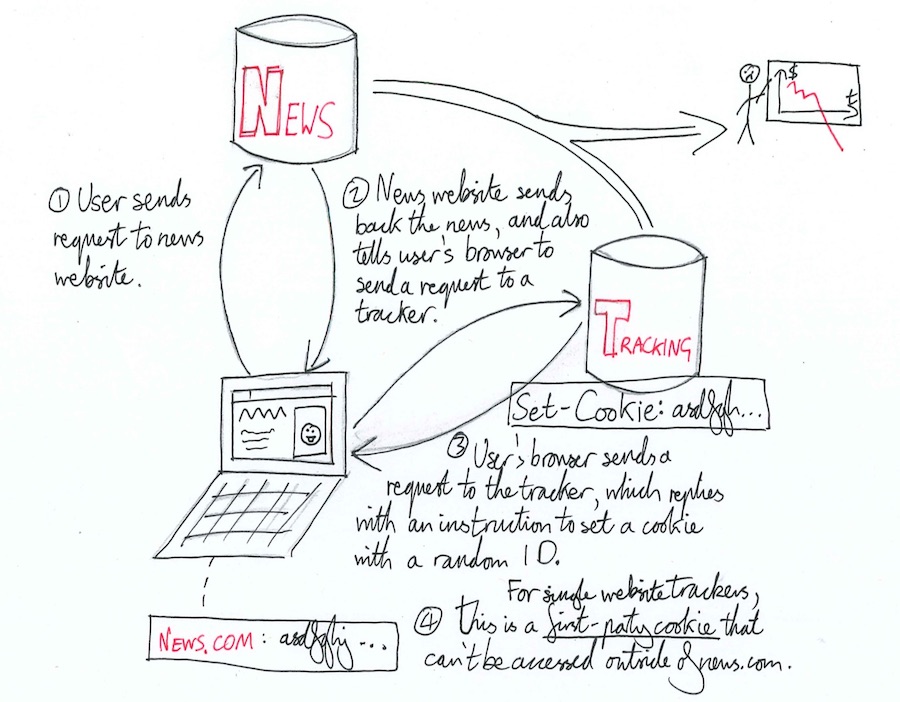 NEWS
$
t
① User sends
request to news
website.
② News website sends
back the news, and also
tells user's browser to
send a request to a
tracker.
TRACKING
Set-Cookie: asdfgh...
③ User's browser sends a
request to the tracker, which replies
with an instruction to set a cookie
with a random ID.
For single website trackers,
④ this is a first-party cookie that
can't be accessed outside of news.com.
NEWS.COM: asdfghj...